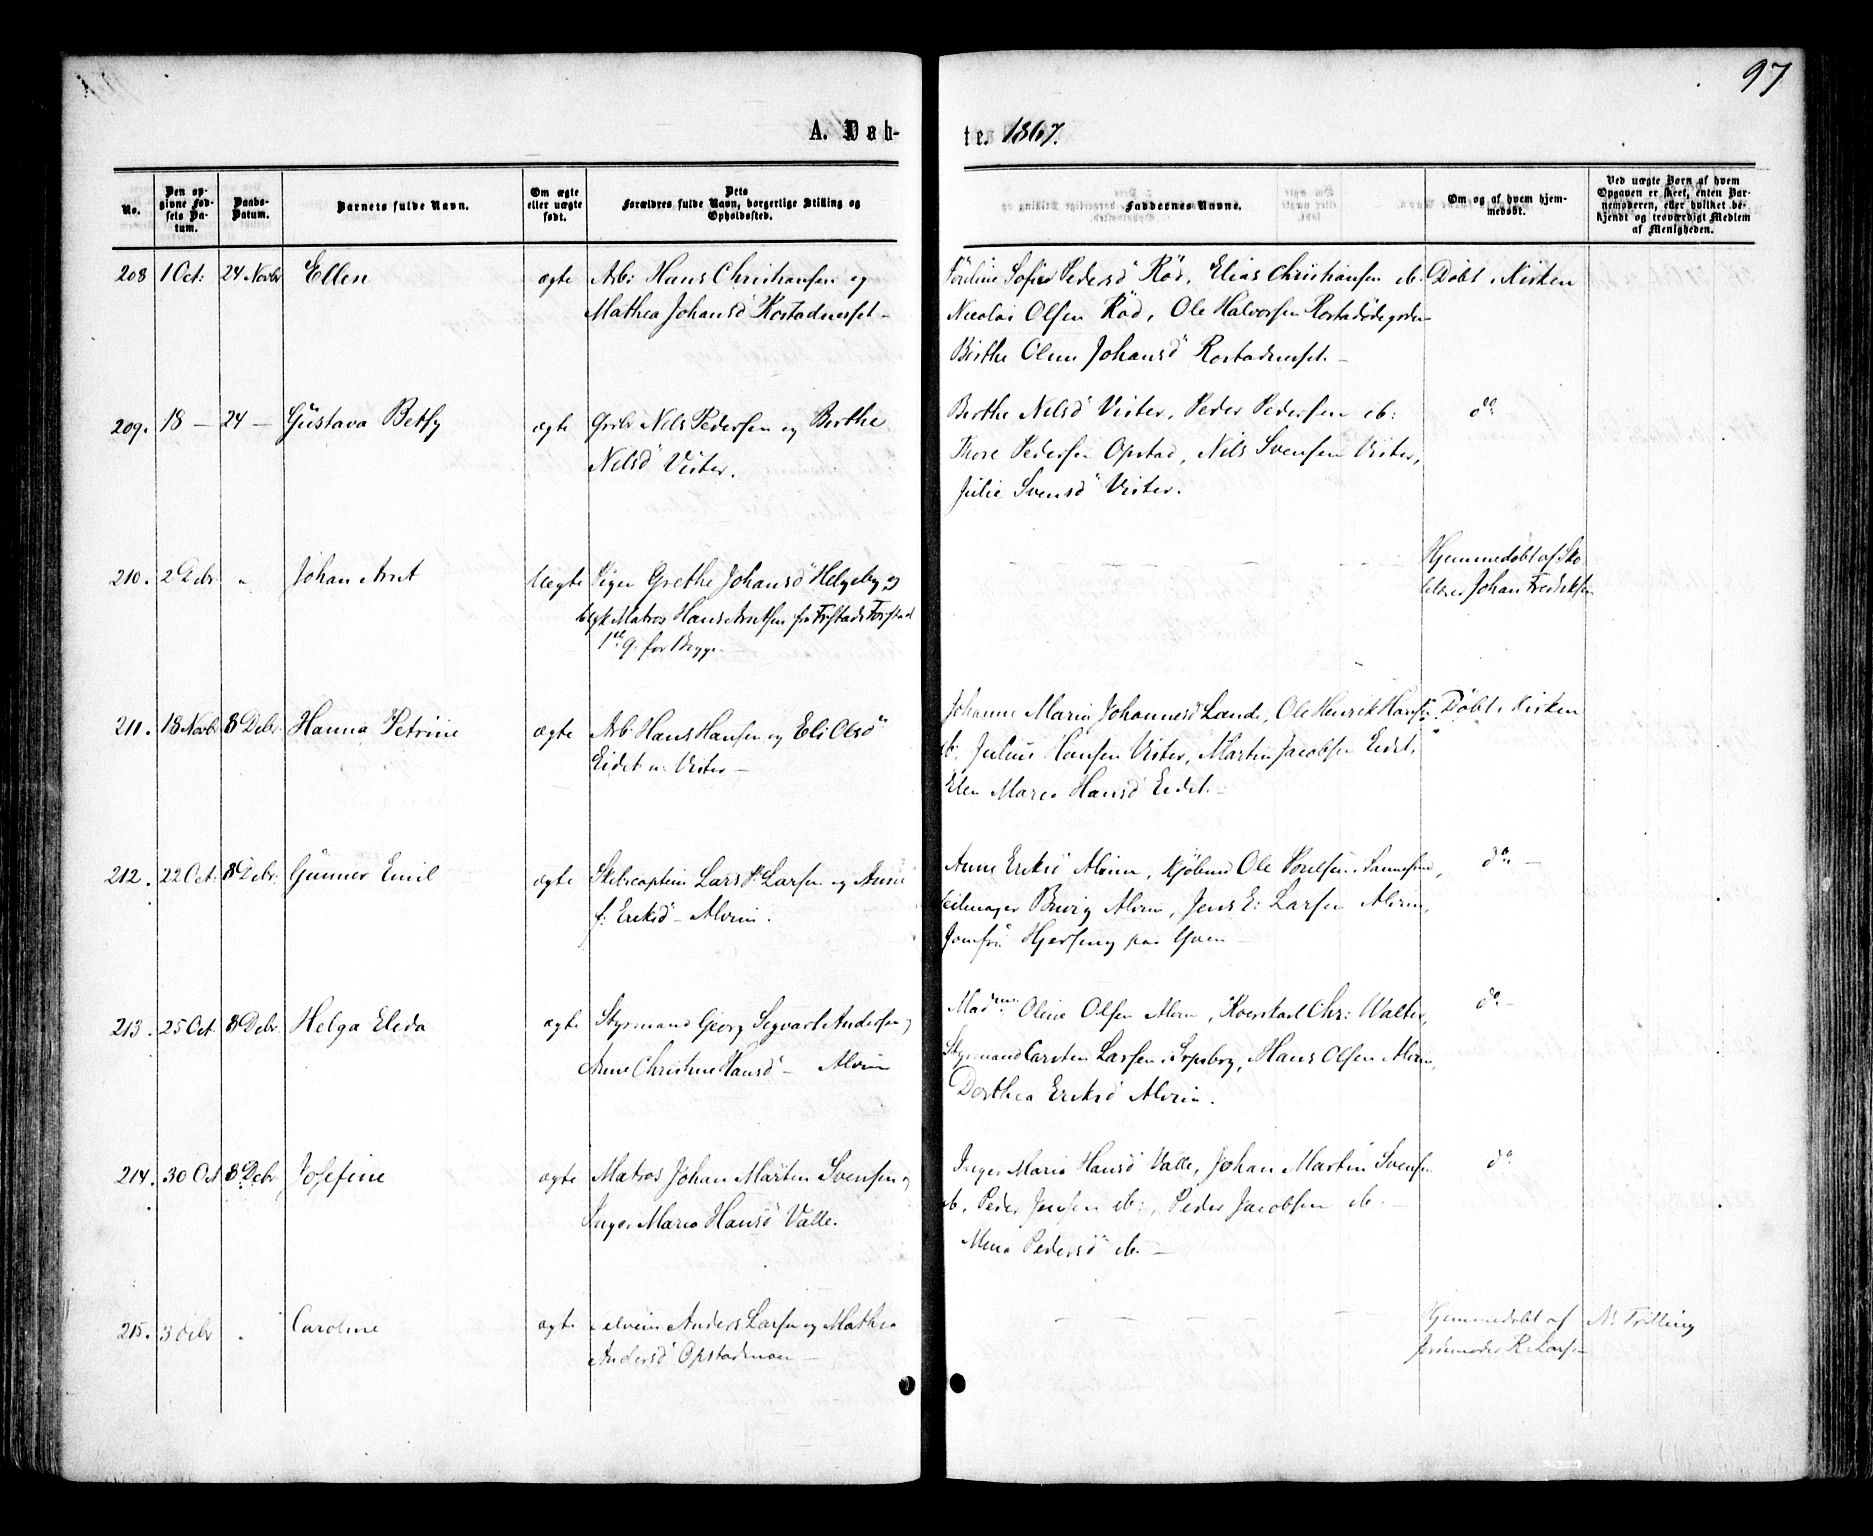 97
A. Døb-
te. 1867.
No.
Den op-
givne Fød-
sels Da-
tum.
Daabs-
Datum.
Barnets fulde Navn.
Om ægte
eller uægte
født.
Dets
Forældres fulde Navn, borgerlige Stilling og
Opholdssted.
Faddernes Navne.
Om og af hvem hjem-
medøbt.
Ved uægte Børn af hvem
Opgaven er skeet, enten Bar-
nemoderen, eller hvilket be-
kjendt og troværdigt Medlem
af Menigheden.
208 1 Oct: 24 Novbr Ellen ægte Arb: Hans Christiansen og
Mathea Johansd Rostadneset –
Sofie Pedersd Rød, Elias Christiansen ib: Døbt i Kirken
Nicolai Olsen Rød, Ole Halvorsen Rostadødegorden
Birthe Oline Johansd Rostadneset. –
209. 18 – 24 – Gustava Betsy ægte Grbr Nels Pedersen og Berthe
Nelsd Vister.
Berthe Nelsd Vister, Peder Pedersen ib: do
Thore Pedersen Opstad, Nils Svensen Vister,
Julie Svensd Vister.
210. 2 Debr " Johan Arnt Uægte Pigen Grethe Johansd Helgeby og
Ugk Matros Hans Arntsen fra Fr.stad
1ste g. for Begge –
Hjemmedøbt af Sko-
lelærer Johan Fredriksen
211. 18 Novbr 8 Debr Hanna Petrine ægte Arb: Hans Hansen og Eli Olsd
Eidet u. Vister –
Johanne Maria Johannesd Lande, Ole Henrik Hansen Døbt i Kirken
ib, Julius Hansen Vister, Martin Jacobsen Eidet,
Elen Maria Hansd Eidet. –
212. 22 Oct: 8 Debr: Gunner Emil ægte Skibscaptein Lars P. Larsen og Anne
f. Eriksd – Alvim.
Anne Eriksd Alvim, Kjøbmd Ole Sannesund, do –
Seilmager Brevig Alvim, Jens E: Larsen Alvim,
Jomfru paa
213. 25 Oct 8 Debr Helga Elida ægte Styrmand Georg Segvart Andersen og
Anne Christine Hansd – Alvim
Madme Oline Olsen Alvim, Chr: Walter, do –
Styrmand Carsten Larsen i Srpsborg, Hans Olsen Alvim,
Dorthea Eriksd Alvim.
214. 30 Oct 8 Debr Josefine ægte Matros Johan Martin Svensen og
Inger Maria Hansd Valle.
Inger Maria Hansd Valle, Johan Martin Svensen do
ib, Peder Jensen ib:, Peder Jacobsen ib. –
Mina Pedersd ib. –
215. 3 Debr " Caroline ægte Anders Larsen og Mathea
Andersd Opstadmoen –
Hjemmedøbt af
Jordemoder R. Larsen
N: